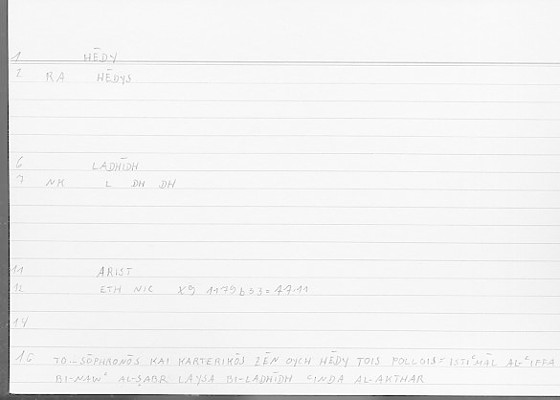 1 HĒDY
2 RA HĒDYS
6 LADHĪDH
7 NK L DH DH
11 ARIST
12 ETH NIC X9 1179b33=47.11
14
16 TO...SŌPHRONŌS KAI KARTERIKŌS ZĒN OYCH HĒDY TOIS POLLOIS = ISTIʿMĀL AL-ʿIFFA
BI-NAWʿ AL-ṢABR LAYSA BI-LADHĪDH ʿINDA AL-AKTHAR